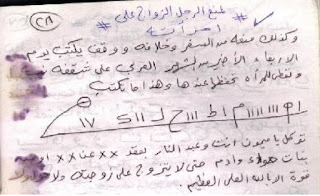 ٢٨
# لمنع الرجل الزواج على #
امرأته
وكذلك منعه من السفر وخلافه ووقف يكتب يوم
الاربعاء الأخير من الشهر العربي على شقفة
وتعطى للمرأة تحفظها عندها وهذا ما يكتب
١٧
توكل يا ميمون انت وعبد النار بعقد xx عن xx
بنات حواء وادم حتى لا يتزوج على زوجته ولا حول ولا
قوة الا بالله العلى العظيم